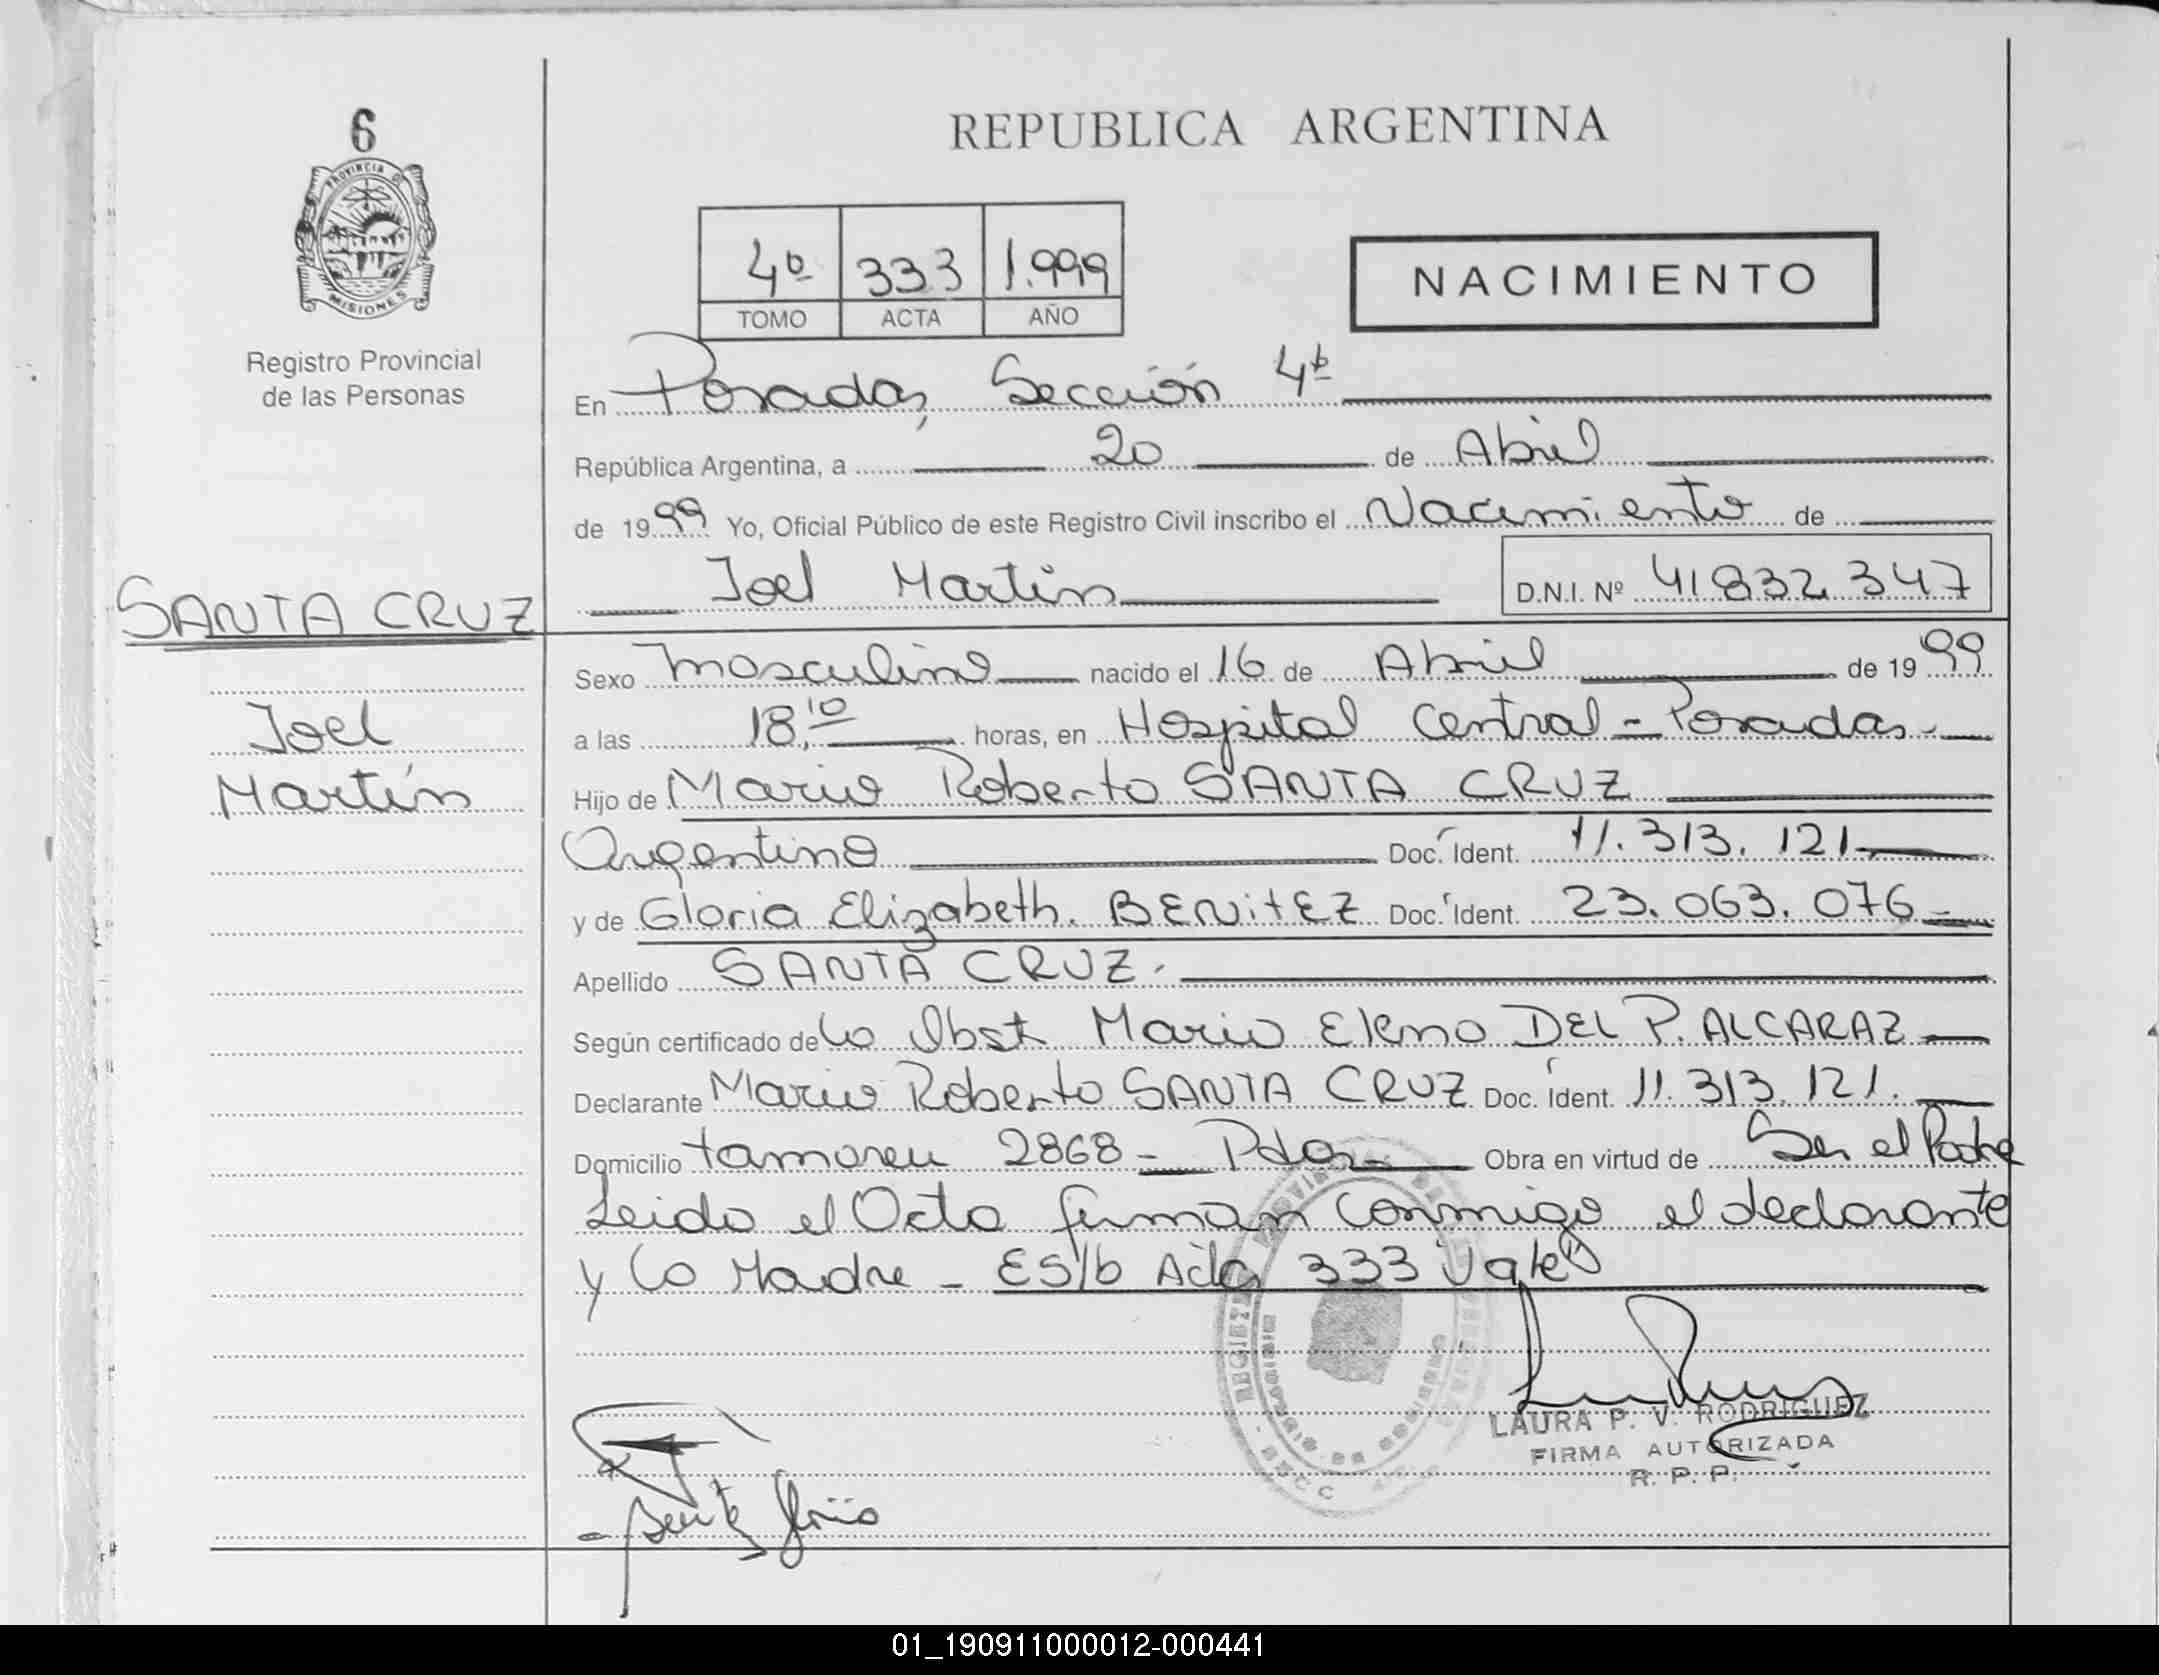 6
PROVINCIA DE
MISIONES
Registro Provincial
de las Personas
REPUBLICA ARGENTINA
4º 333 1.999
TOMO ACTA AÑO
NACIMIENTO
En Posadas, Sección 4ª
República Argentina, a 20 de Abril
de 1999 Yo, Oficial Público de este Registro Civil inscribo el Nacimiento de
Joel Martín D.N.I. Nº 41832347
SANTA CRUZ
Joel
Martín
Sexo masculino nacido el 16 de Abril de 1999
a las 18,10 horas, en Hospital Central - Posadas
Hijo de Mario Roberto SANTA CRUZ
Argentino Doc. Ident. 11.313.121
y de Gloria Elizabeth. BENITEZ Doc. Ident. 23.063.076
Apellido SANTA CRUZ.
Según certificado de la Obst. Maria Elena DEL P. ALCARAZ
Declarante Mario Roberto SANTA CRUZ Doc. Ident. 11.313.121.
Domicilio 2868 - Pdas Obra en virtud de Ser el Padre
Leida el Acta firman conmigo el declarante
y la Madre - ES/b Acta 333 Vale
LAURA P. V. RODRIGUEZ
FIRMA AUTORIZADA
R. P. P.
01_190911000012-000441